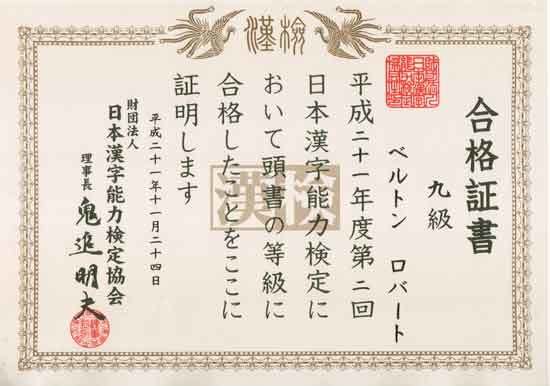 漢検
合格証書
九級
ベルトン　ロバート
平成二十一年度第二回
日本漢字能力検定に
おいて頭書の等級に
合格したことをここに
証明します
平成二十一年十一月二十四日
財団法人
日本漢字能力検定協会
理事長　鬼追明夫
漢検